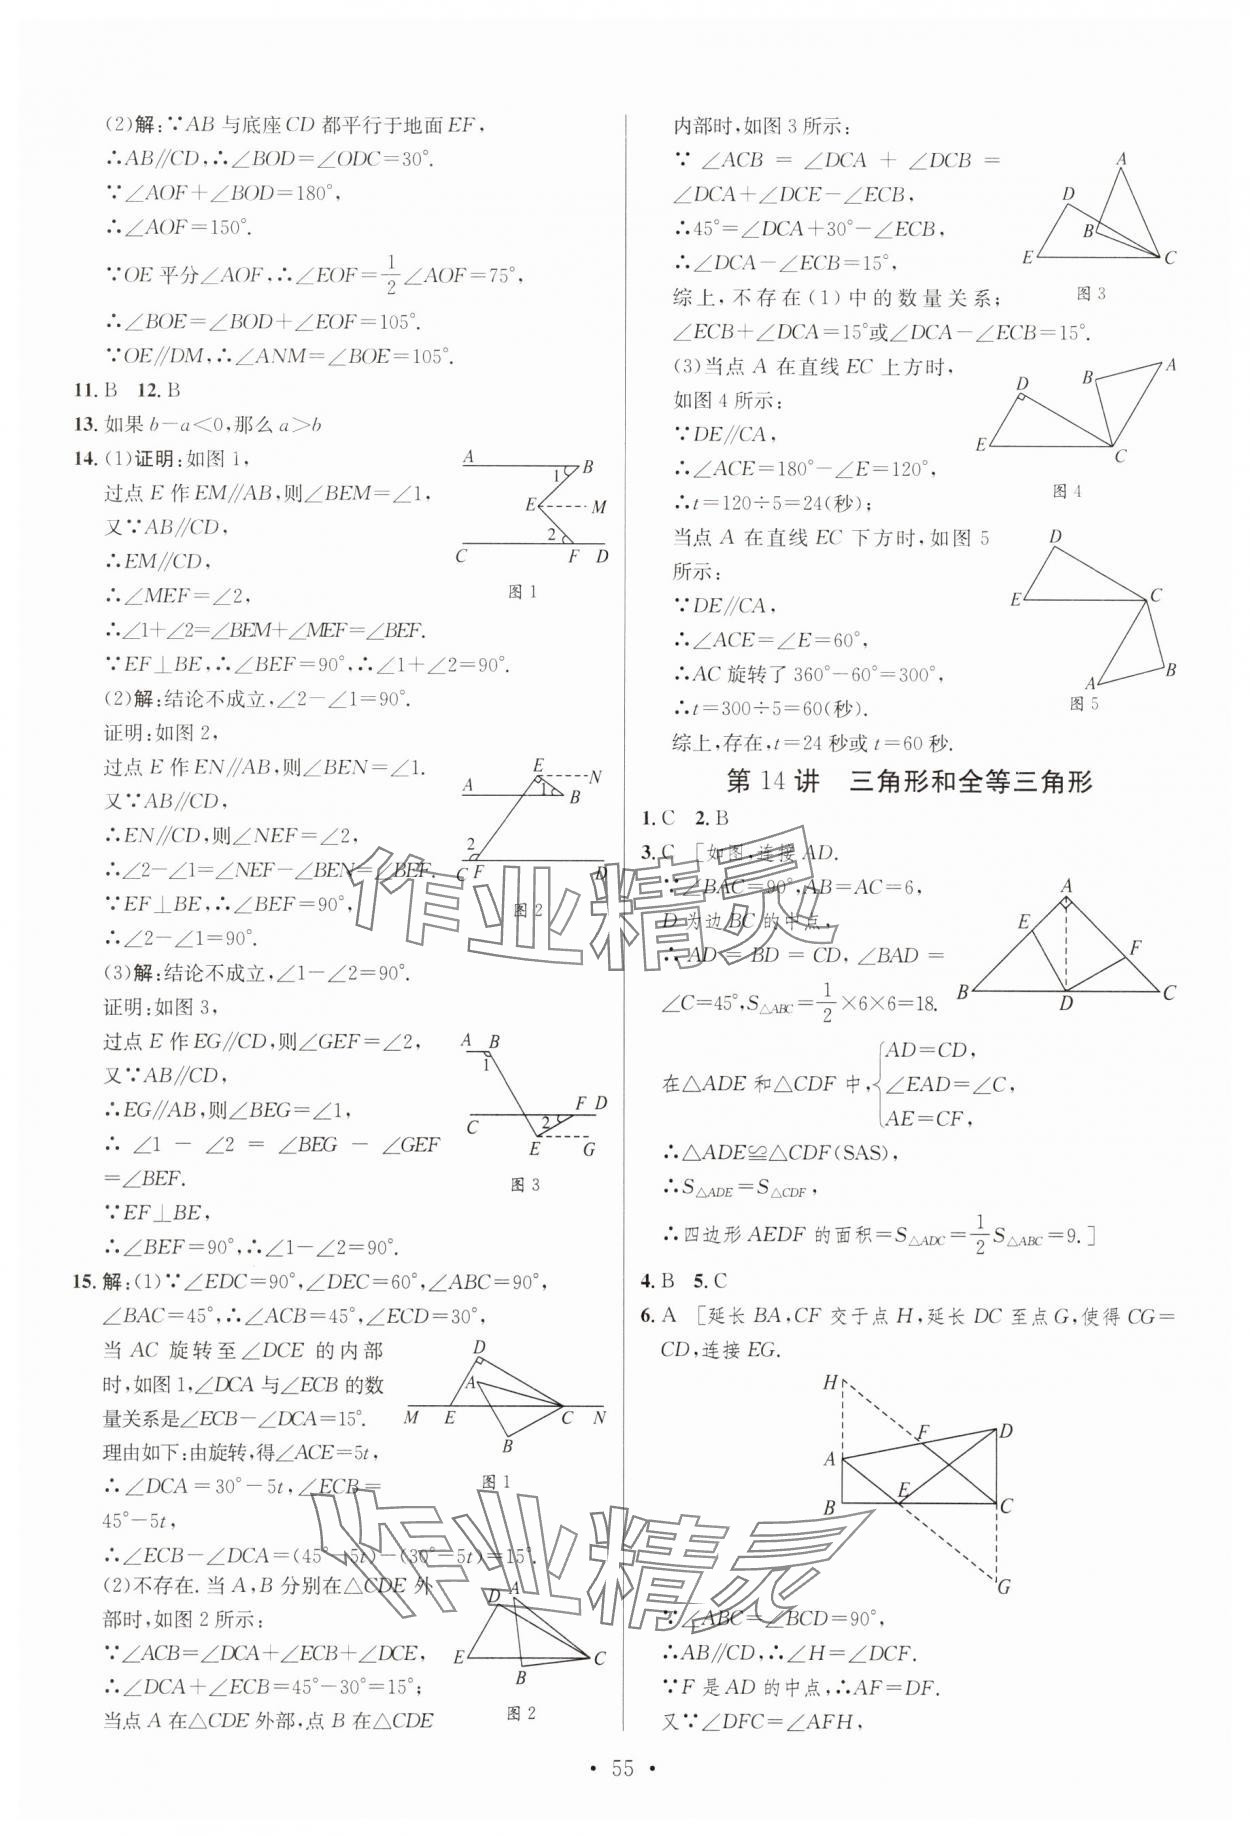 (2)解:∵AB 与底座 CD 都平行于地面 EF,
∴AB∥CD,∴∠BOD=∠ODC=30°.
∵∠AOF+∠BOD=180°,
∴∠AOF=150°.
∵OE 平分∠AOF,∴∠EOF=1/2∠AOF=75°,
∴∠BOE=∠BOD+∠EOF=105°.
∵OE∥DM,∴∠ANM=∠BOE=105°.
11. B 12. B
13. 如果 b-a<0,那么 a>b
14. (1)证明:如图 1,
过点 E 作 EM∥AB,则∠BEM=∠1,
又∵AB∥CD,
∴EM∥CD,
∴∠MEF=∠2,
∴∠1+∠2=∠BEM+∠MEF=∠BEF.
∵EF⊥BE,∴∠BEF=90°,∴∠1+∠2=90°.
A B 1 E M 2 C F D
图 1
(2)解:结论不成立,∠2-∠1=90°.
证明:如图 2,
过点 E 作 EN∥AB,则∠BEN=∠1.
又∵AB∥CD,
∴EN∥CD,则∠NEF=∠2,
∴∠2-∠1=∠NEF-∠BEN=∠BEF.
∵EF⊥BE,∴∠BEF=90°,
∴∠2-∠1=90°.
E N A 1 B 2 C F D
图 2
(3)解:结论不成立,∠1-∠2=90°.
证明:如图 3,
过点 E 作 EG∥CD,则∠GEF=∠2,
又∵AB∥CD,
∴EG∥AB,则∠BEG=∠1,
∴ ∠1 - ∠2 = ∠BEG - ∠GEF
=∠BEF.
∵EF⊥BE,
∴∠BEF=90°,∴∠1-∠2=90°.
A B 1 F D C 2 E G
图 3
15. 解:(1)∵∠EDC=90°,∠DEC=60°,∠ABC=90°,
∠BAC=45°,∴∠ACB=45°,∠ECD=30°,
当 AC 旋转至∠DCE 的内部
时,如图 1,∠DCA 与∠ECB 的数
量关系是∠ECB-∠DCA=15°.
理由如下:由旋转,得∠ACE=5t,
∴∠DCA=30°-5t,∠ECB=
45°-5t,
∴∠ECB-∠DCA=(45°-5t)-(30°-5t)=15°.
D A M E C N B
图 1
(2)不存在. 当 A,B 分别在△CDE 外
部时,如图 2 所示:
∵∠ACB=∠DCA+∠ECB+∠DCE,
∴∠DCA+∠ECB=45°-30°=15°;
当点 A 在△CDE 外部,点 B 在△CDE
D A E C B
图 2
内部时,如图 3 所示:
∵ ∠ACB = ∠DCA + ∠DCB =
∠DCA+∠DCE-∠ECB,
∴45°=∠DCA+30°-∠ECB,
∴∠DCA-∠ECB=15°,
综上,不存在(1)中的数量关系;
∠ECB+∠DCA=15°或∠DCA-∠ECB=15°.
A D B E C
图 3
(3)当点 A 在直线 EC 上方时,
如图 4 所示:
∵DE∥CA,
∴∠ACE=180°-∠E=120°,
∴t=120÷5=24(秒);
A B D E C
图 4
当点 A 在直线 EC 下方时,如图 5
所示:
∵DE∥CA,
∴∠ACE=∠E=60°,
∴AC 旋转了 360°-60°=300°,
∴t=300÷5=60(秒).
综上,存在,t=24 秒或 t=60 秒.
D E C B A
图 5
第 14 讲 三角形和全等三角形
1. C 2. B
3. C [如图,连接 AD.
∵∠BAC=90°,AB=AC=6,
D 为边 BC 的中点,
∴ AD = BD = CD, ∠BAD =
∠C=45°,S△ABC=1/2×6×6=18.
A E F B D C
在△ADE 和△CDF 中,{AD=CD,
∠EAD=∠C,
AE=CF,
∴△ADE≌△CDF(SAS),
∴S△ADE=S△CDF,
∴四边形 AEDF 的面积=S△ADC=1/2S△ABC=9.]
4. B 5. C
6. A [延长 BA,CF 交于点 H,延长 DC 至点 G,使得 CG=
CD,连接 EG.
H F D A E B C G
∵∠ABC=∠BCD=90°,
∴AB∥CD,∴∠H=∠DCF.
∵F 是 AD 的中点,∴AF=DF.
又∵∠DFC=∠AFH,
作业精灵
作业精灵
· 55 ·